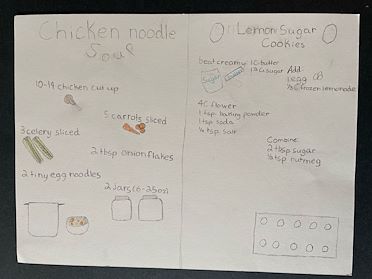 Chicken noodle
Soup
10-19 chicken cut up
5 carrots sliced
3 celery sliced
2 tbsp onion flakes
2 tiny egg noodles
2 Jars (6-25oz)
Lemon Sugar
Cookies
beat creamy: 1C butter
Sugar
Add:
1 egg
⅓ C frozen lemonade
4C flower
1 tsp baking powder
1 tsp soda
¼ tsp salt
Combine
2 tbsp sugar
½ tsp nutmeg